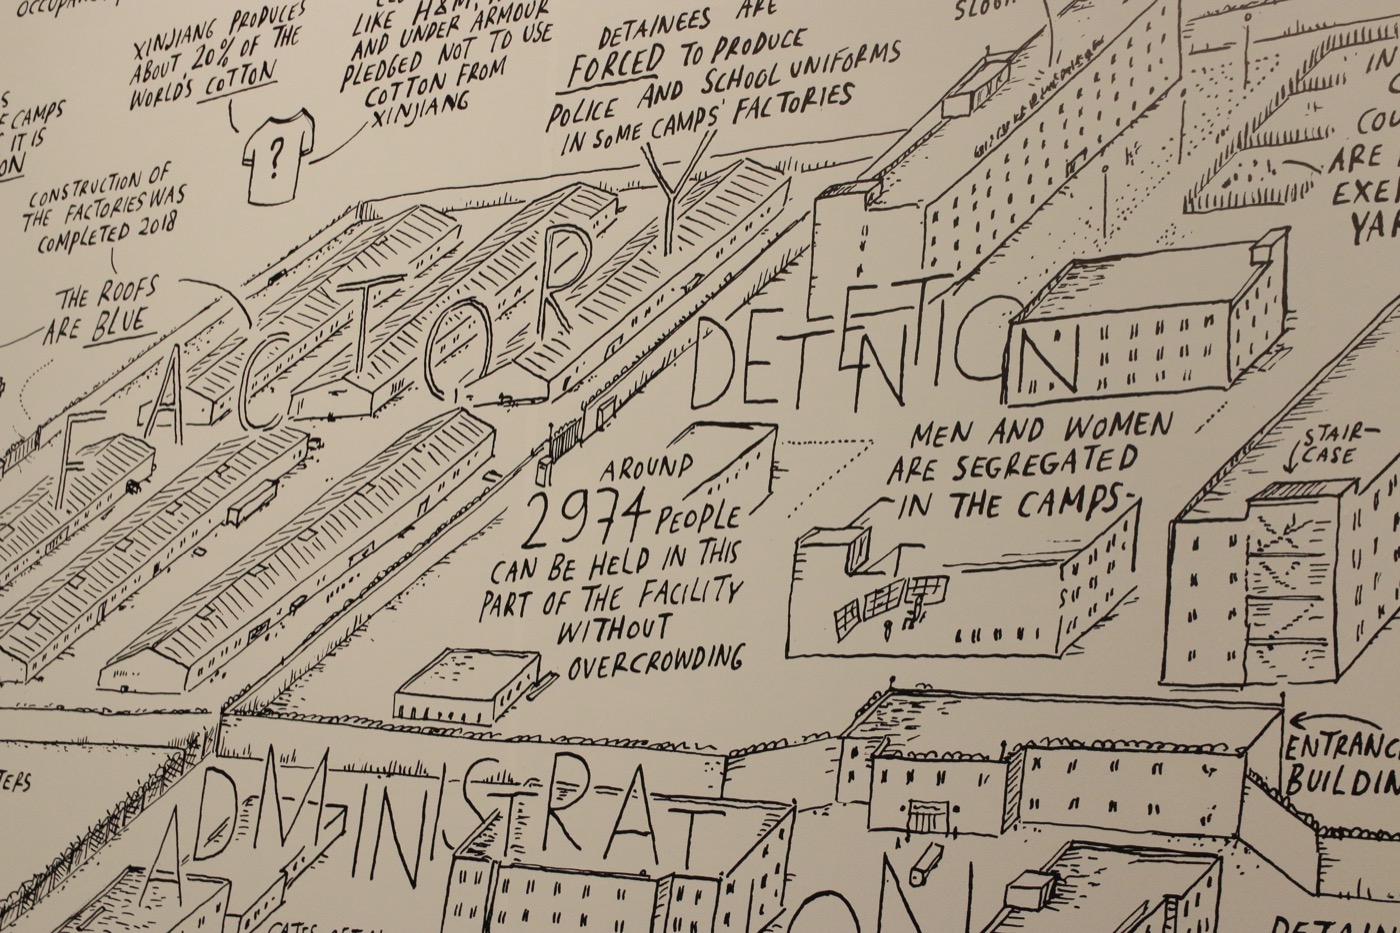 XINJIANG PRODUCES
ABOUT 20% OF THE
WORLD'S COTTON
LIKE H&M,
AND UNDER ARMOUR
PLEDGED NOT TO USE
COTTON FROM
XINJIANG
?
DETAINEES ARE
FORCED TO PRODUCE
POLICE AND SCHOOL UNIFORMS
IN SOME CAMPS' FACTORIES
CAMPS
IT IS
CONSTRUCTION OF
THE FACTORIES WAS
COMPLETED 2018
THE ROOFS
ARE BLUE
FACTORY
DETENTION
IN
ARE
MEN AND WOMEN
ARE SEGREGATED
IN THE CAMPS
STAIR-
CASE
AROUND
2974 PEOPLE
CAN BE HELD IN THIS
PART OF THE FACILITY
WITHOUT
OVERCROWDING
ADMINISTRAT
ON